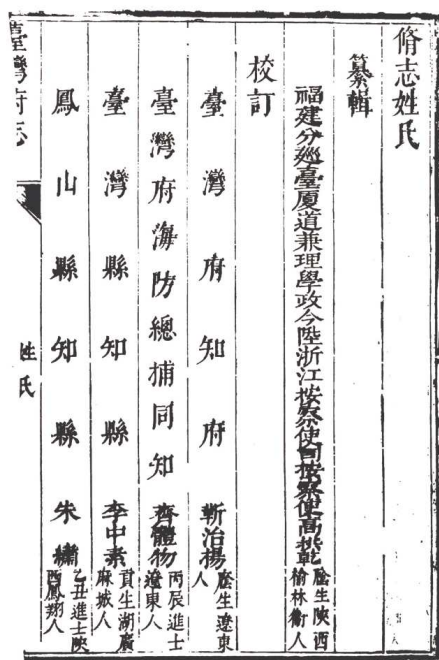 脩志姓氏
纂輯
福建分廵臺厦道兼理學政今陞浙江按察使司按察使高拱乾 廕生陝西榆林衛人
校訂
臺灣府知府 靳治揚 廕生遼東人
臺灣府海防總捕同知 齊體物 丙辰進士遼東人
臺灣縣知縣 李中素 貢生湖廣麻城人
鳳山縣知縣 朱繡 乙丑進士陝西鳳翔人
臺灣府志
姓氏